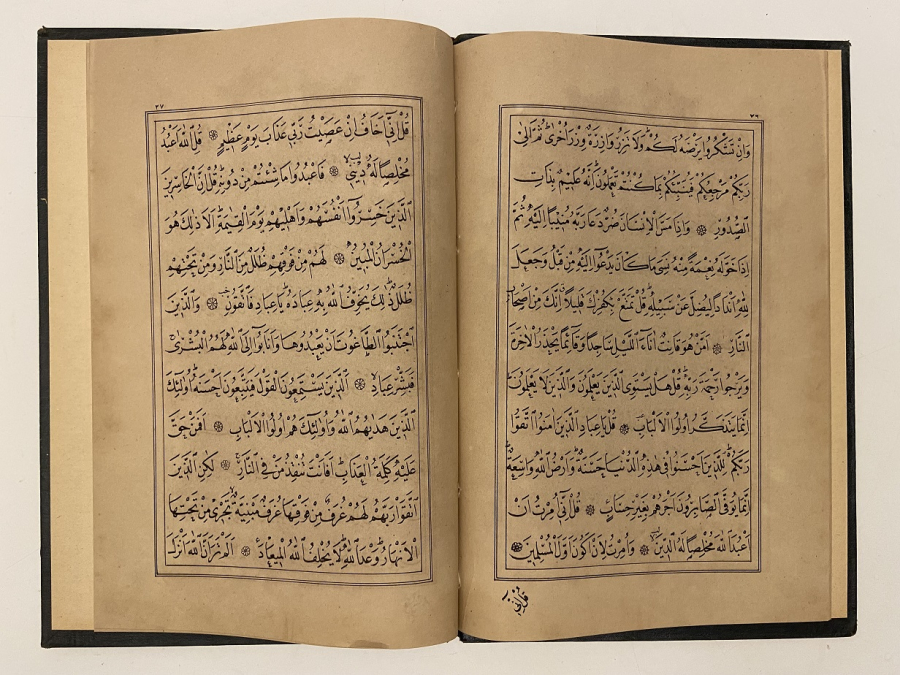 ٣٦
وَاِنْ تَشْكُرُوا يَرْضَهُ لَكُمْ وَلَا تَزِرُ وَازِرَةٌ وِزْرَ اُخْرٰى ثُمَّ اِلٰى
رَبِّكُمْ مَرْجِعُكُمْ فَيُنَبِّئُكُمْ بِمَا كُنْتُمْ تَعْمَلُونَ اِنَّهُ عَلِيمٌ بِذَاتِ
الصُّدُورِ ۞ وَاِذَا مَسَّ الْاِنْسَانَ ضُرٌّ دَعَا رَبَّهُ مُنِيبًا اِلَيْهِ ثُمَّ
اِذَا خَوَّلَهُ نِعْمَةً مِنْهُ نَسِيَ مَا كَانَ يَدْعُوا اِلَيْهِ مِنْ قَبْلُ وَجَعَلَ
لِلّٰهِ اَنْدَادًا لِيُضِلَّ عَنْ سَبِيلِهِ قُلْ تَمَتَّعْ بِكُفْرِكَ قَلِيلًا اِنَّكَ مِنْ اَصْحَابِ
النَّارِ ۞ اَمَّنْ هُوَ قَانِتٌ اٰنَاءَ الَّيْلِ سَاجِدًا وَقَائِمًا يَحْذَرُ الْاٰخِرَةَ
وَيَرْجُوا رَحْمَةَ رَبِّهِ قُلْ هَلْ يَسْتَوِى الَّذِينَ يَعْلَمُونَ وَالَّذِينَ لَا يَعْلَمُونَ
اِنَّمَا يَتَذَكَّرُ اُولُوا الْاَلْبَابِ ۞ قُلْ يَا عِبَادِ الَّذِينَ اٰمَنُوا اتَّقُوا
رَبَّكُمْ لِلَّذِينَ اَحْسَنُوا فِى هٰذِهِ الدُّنْيَا حَسَنَةٌ وَاَرْضُ اللّٰهِ وَاسِعَةٌ
اِنَّمَا يُوَفَّى الصَّابِرُونَ اَجْرَهُمْ بِغَيْرِ حِسَابٍ ۞ قُلْ اِنِّى اُمِرْتُ اَنْ
اَعْبُدَ اللّٰهَ مُخْلِصًا لَهُ الدِّينَ ۞ وَاُمِرْتُ لِاَنْ اَكُونَ اَوَّلَ الْمُسْلِمِينَ ۞
قُلْ اِنِّى
٣٧
قُلْ اِنِّى اَخَافُ اِنْ عَصَيْتُ رَبِّى عَذَابَ يَوْمٍ عَظِيمٍ ۞ قُلِ اللّٰهَ اَعْبُدُ
مُخْلِصًا لَهُ دِينِى ۞ فَاعْبُدُوا مَا شِئْتُمْ مِنْ دُونِهِ قُلْ اِنَّ الْخَاسِرِينَ
الَّذِينَ خَسِرُوا اَنْفُسَهُمْ وَاَهْلِيهِمْ يَوْمَ الْقِيٰمَةِ اَلَا ذٰلِكَ هُوَ
الْخُسْرَانُ الْمُبِينُ ۞ لَهُمْ مِنْ فَوْقِهِمْ ظُلَلٌ مِنَ النَّارِ وَمِنْ تَحْتِهِمْ
ظُلَلٌ ذٰلِكَ يُخَوِّفُ اللّٰهُ بِهِ عِبَادَهُ يَا عِبَادِ فَاتَّقُونِ ۞ وَالَّذِينَ
اجْتَنَبُوا الطَّاغُوتَ اَنْ يَعْبُدُوهَا وَاَنَابُوا اِلَى اللّٰهِ لَهُمُ الْبُشْرٰى
فَبَشِّرْ عِبَادِ ۞ اَلَّذِينَ يَسْتَمِعُونَ الْقَوْلَ فَيَتَّبِعُونَ اَحْسَنَهُ اُولٰئِكَ
الَّذِينَ هَدٰيهُمُ اللّٰهُ وَاُولٰئِكَ هُمْ اُولُوا الْاَلْبَابِ ۞ اَفَمَنْ حَقَّ
عَلَيْهِ كَلِمَةُ الْعَذَابِ اَفَاَنْتَ تُنْقِذُ مَنْ فِى النَّارِ ۞ لٰكِنِ الَّذِينَ
اتَّقَوْا رَبَّهُمْ لَهُمْ غُرَفٌ مِنْ فَوْقِهَا غُرَفٌ مَبْنِيَّةٌ تَجْرِى مِنْ تَحْتِهَا
الْاَنْهَارُ وَعْدَ اللّٰهِ لَا يُخْلِفُ اللّٰهُ الْمِيعَادَ ۞ اَلَمْ تَرَ اَنَّ اللّٰهَ اَنْزَلَ